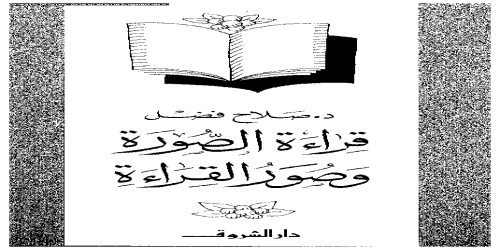 د. صلاح فضل
قراءة الصورة
وصور القراءة
دار الشروق